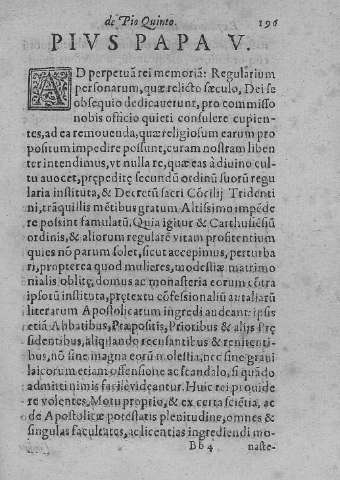 de Pio Quinto. 196
PIVS PAPA V.
AD perpetuā rei memoriā: Regularium
personarum, quæ relicto sæculo, Dei se
obsequio dedicauerunt, pro commisso
nobis officio quieti consulere cupien-
tes, ad ea remouenda, quæ religiosum earum pro
positum impedire possunt, curam nostram liben
ter intendimus, vt nulla re, quæ eas à diuino cul-
tu auocet, prępeditę secundū ordinū suorū regu
laria instituta, & Decretū sacri Cōcilij Tridenti
ni, trāquillis mētibus gratum Altissimo impēde
re possint famulatū. Quia igitur & Carthusiēsiū
ordinis, & aliorum regularē vitam profitentium
quies nō parum solet, sicut accepimus, perturba
ri, propterea quod mulieres, modestiæ matrimo
nialis oblitę, domus ac monasteria eorum cōtra
ipsorū instituta, prętextu cōfessionaliū aut aliarū
literarum Apostolicarum ingredi audeant: ipsis
etiā Abbatibus, Præpositis, Prioribus & alijs Prę
sidentibus, aliquando recusantibus & renitenti-
bus, nō sine magna eorū molestia, nec sine graui
laicorum etiam offensione ac scandalo, si quādo
admitti nimis facilè videantur. Huic rei prouide
re volentes, Motu proprio, & ex certa sciētia, ac
de Apostolicæ potestatis plenitudine, omnes &
singulas facultates, ac licentias ingrediendi mo-
Bb 4 naste-